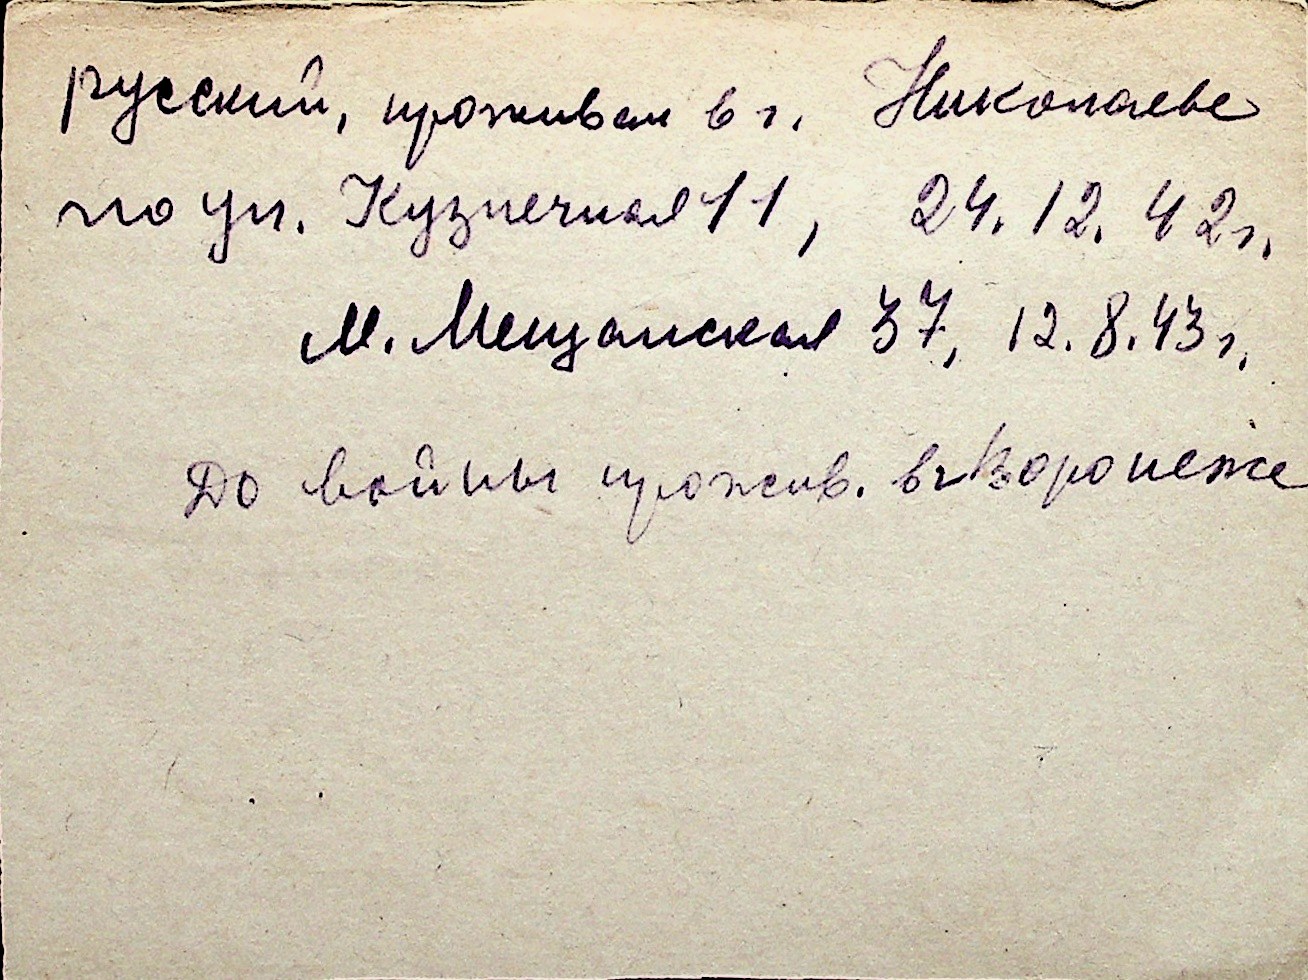 русский, проживал в г. Николаеве
по ул. Кузнечная 11, 24.12.42г.
М. Мещанская 37, 12.8.43г.
До войны прожив. в г Воронеже